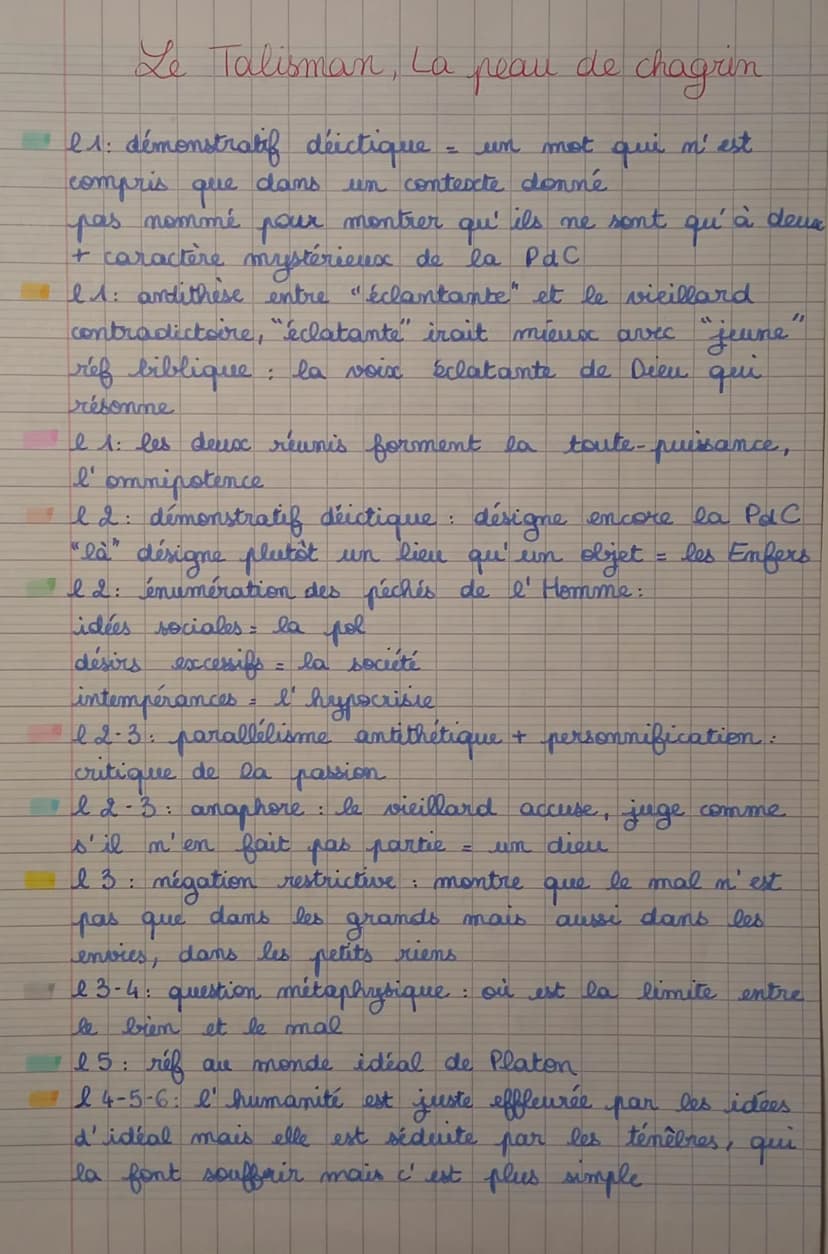 Le Talisman, La peau de chagrin
l 1: démonstratif déictique = un mot qui n'est
compris que dans un contexte donné
pas nommé pour montrer qu'ils ne sont qu'à deux
+ caractère mystérieux de la PdC
l 1: antithèse entre "éclantante" et le vieillard
contradictoire, "éclatante" irait mieux avec "jeune"
réf biblique : la voix éclatante de Dieu qui
résonne
l 1: les deux réunis forment la toute-puissance,
l'omnipotence
l 2: démonstratif déictique : désigne encore la PdC
"là" désigne plutôt un lieu qu'un objet = les Enfers
l 2: énumération des péchés de l'Homme :
idées sociales = la pol
désirs excessifs = la société
intempérances = l'hypocrisie
l 2-3: parallélisme antithétique + personnification :
critique de la passion
l 2-3: anaphore : le vieillard accuse, juge comme
s'il n'en fait pas partie = un dieu
l 3: négation restrictive : montre que le mal n'est
pas que dans les grands mais aussi dans les
envies, dans les petits riens
l 3-4: question métaphysique : où est la limite entre
le bien et le mal
l 5: réf au monde idéal de Platon
l 4-5-6: l'humanité est juste effleurée par les idées
d'idéal mais elle est séduite par les ténèbres, qui
la font souffrir mais c'est plus simple